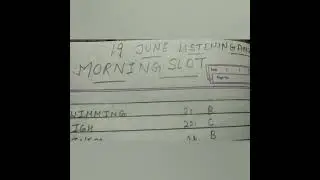 19 JUNE LISTENING ANS
MORNING SLOT
WIMMING 21. B
IGH 22. C
B